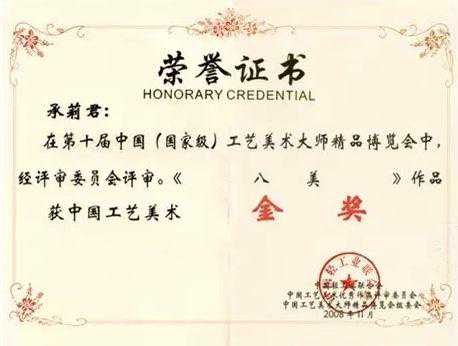 荣誉证书
HONORARY CREDENTIAL
承莉君：
在第十届中国（国家级）工艺美术大师精品博览会中，
经评审委员会评审。《 八 美 》作品
获中国工艺美术 金 奖
中国轻工业联合会
中国工艺美术优秀作品评审委员会
中国工艺美术大师精品博览会组委会
2008年11月